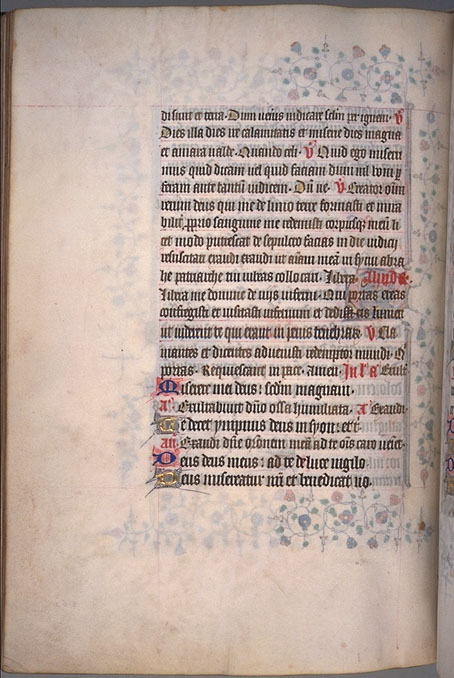 di sunt et terra. Dum veneris iudicare seculum per ignem. V
Dies illa dies ire calamitatis et miserie dies magna
et amara valde. Quando celi. V Quid ego miserri
mus quid dicam vel quid faciam dum nil boni per
feram ante tantum iudicem. Dum ve. V Creator omnium
rerum deus qui me de limo terre formasti et mira
biliter proprio sanguine me redemisti corpusque meum li
cet modo putrescat de sepulcro facias in die iudicij
resuscitari exaudi exaudi ut animam meam in synu abra
he patriarche tui iubeas collocari. Libera. Aliud R
Libera me domine de vijs inferni. Qui portas ereas
confregisti et visitasti infernum et dedisti eis lumen
ut viderent te qui erant in penis tenebrarum. V Cla
mantes et dicentes advenisti redemptor mundi. Qui
portas. Requiescant in pace. Amen. In l a Exult
Miserere mei deus: secundum magnam.
a Exultabunt domino ossa humiliata. a Exaudi
Te decet ympnus deus in syon: et t
an Exaudi domine orationem meam ad te omnis caro veniet.
Deus deus meus: ad te de luce vigilo
Deus misereatur nostri et benedicat no.